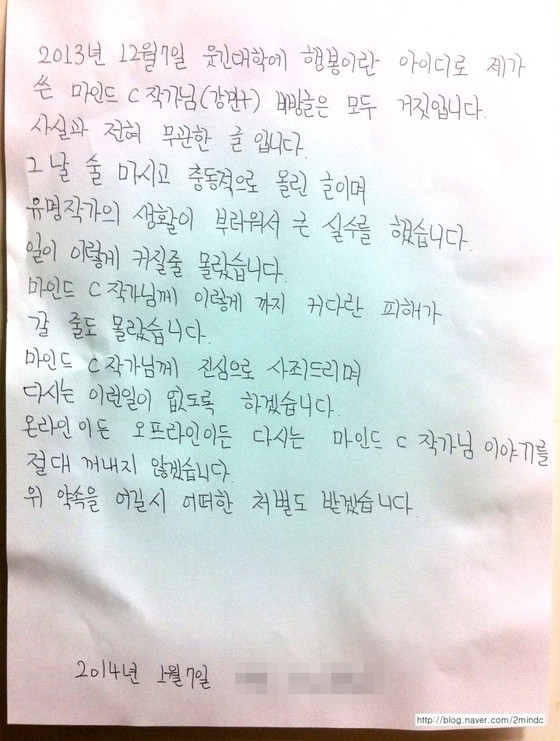 2013년 12월7일 웃긴대학에 행봉이란 아이디로 제가
쓴 마인드 C 작가님(강민+) 비방글은 모두 거짓입니다.
사실과 전혀 무관한 글 입니다.
그 날 술 마시고 충동적으로 올린 글이며
유명작가의 생활이 부러워서 큰 실수를 했습니다.
일이 이렇게 커질줄 몰랐습니다.
마인드 C 작가님께 이렇게 까지 커다란 피해가
갈 줄도 몰랐습니다.
마인드 C 작가님께 진심으로 사죄드리며
다시는 이런일이 없도록 하겠습니다.
온라인이든 오프라인이든 다시는 마인드 C 작가님 이야기를
절대 꺼내지 않겠습니다.
위 약속을 어길시 어떠한 처벌도 받겠습니다.
2014년 1월 7일
http://blog.naver.com/2mindc